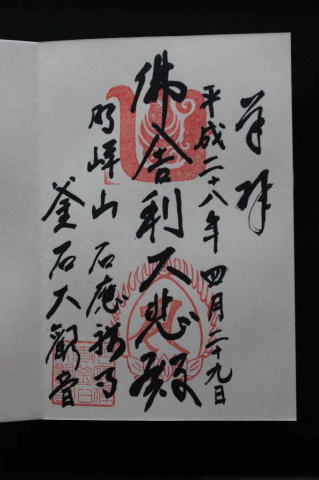 奉拝
平成二十八年四月二十九日
佛舎利大悲殿
明峰山石應禅寺
釜石大観音